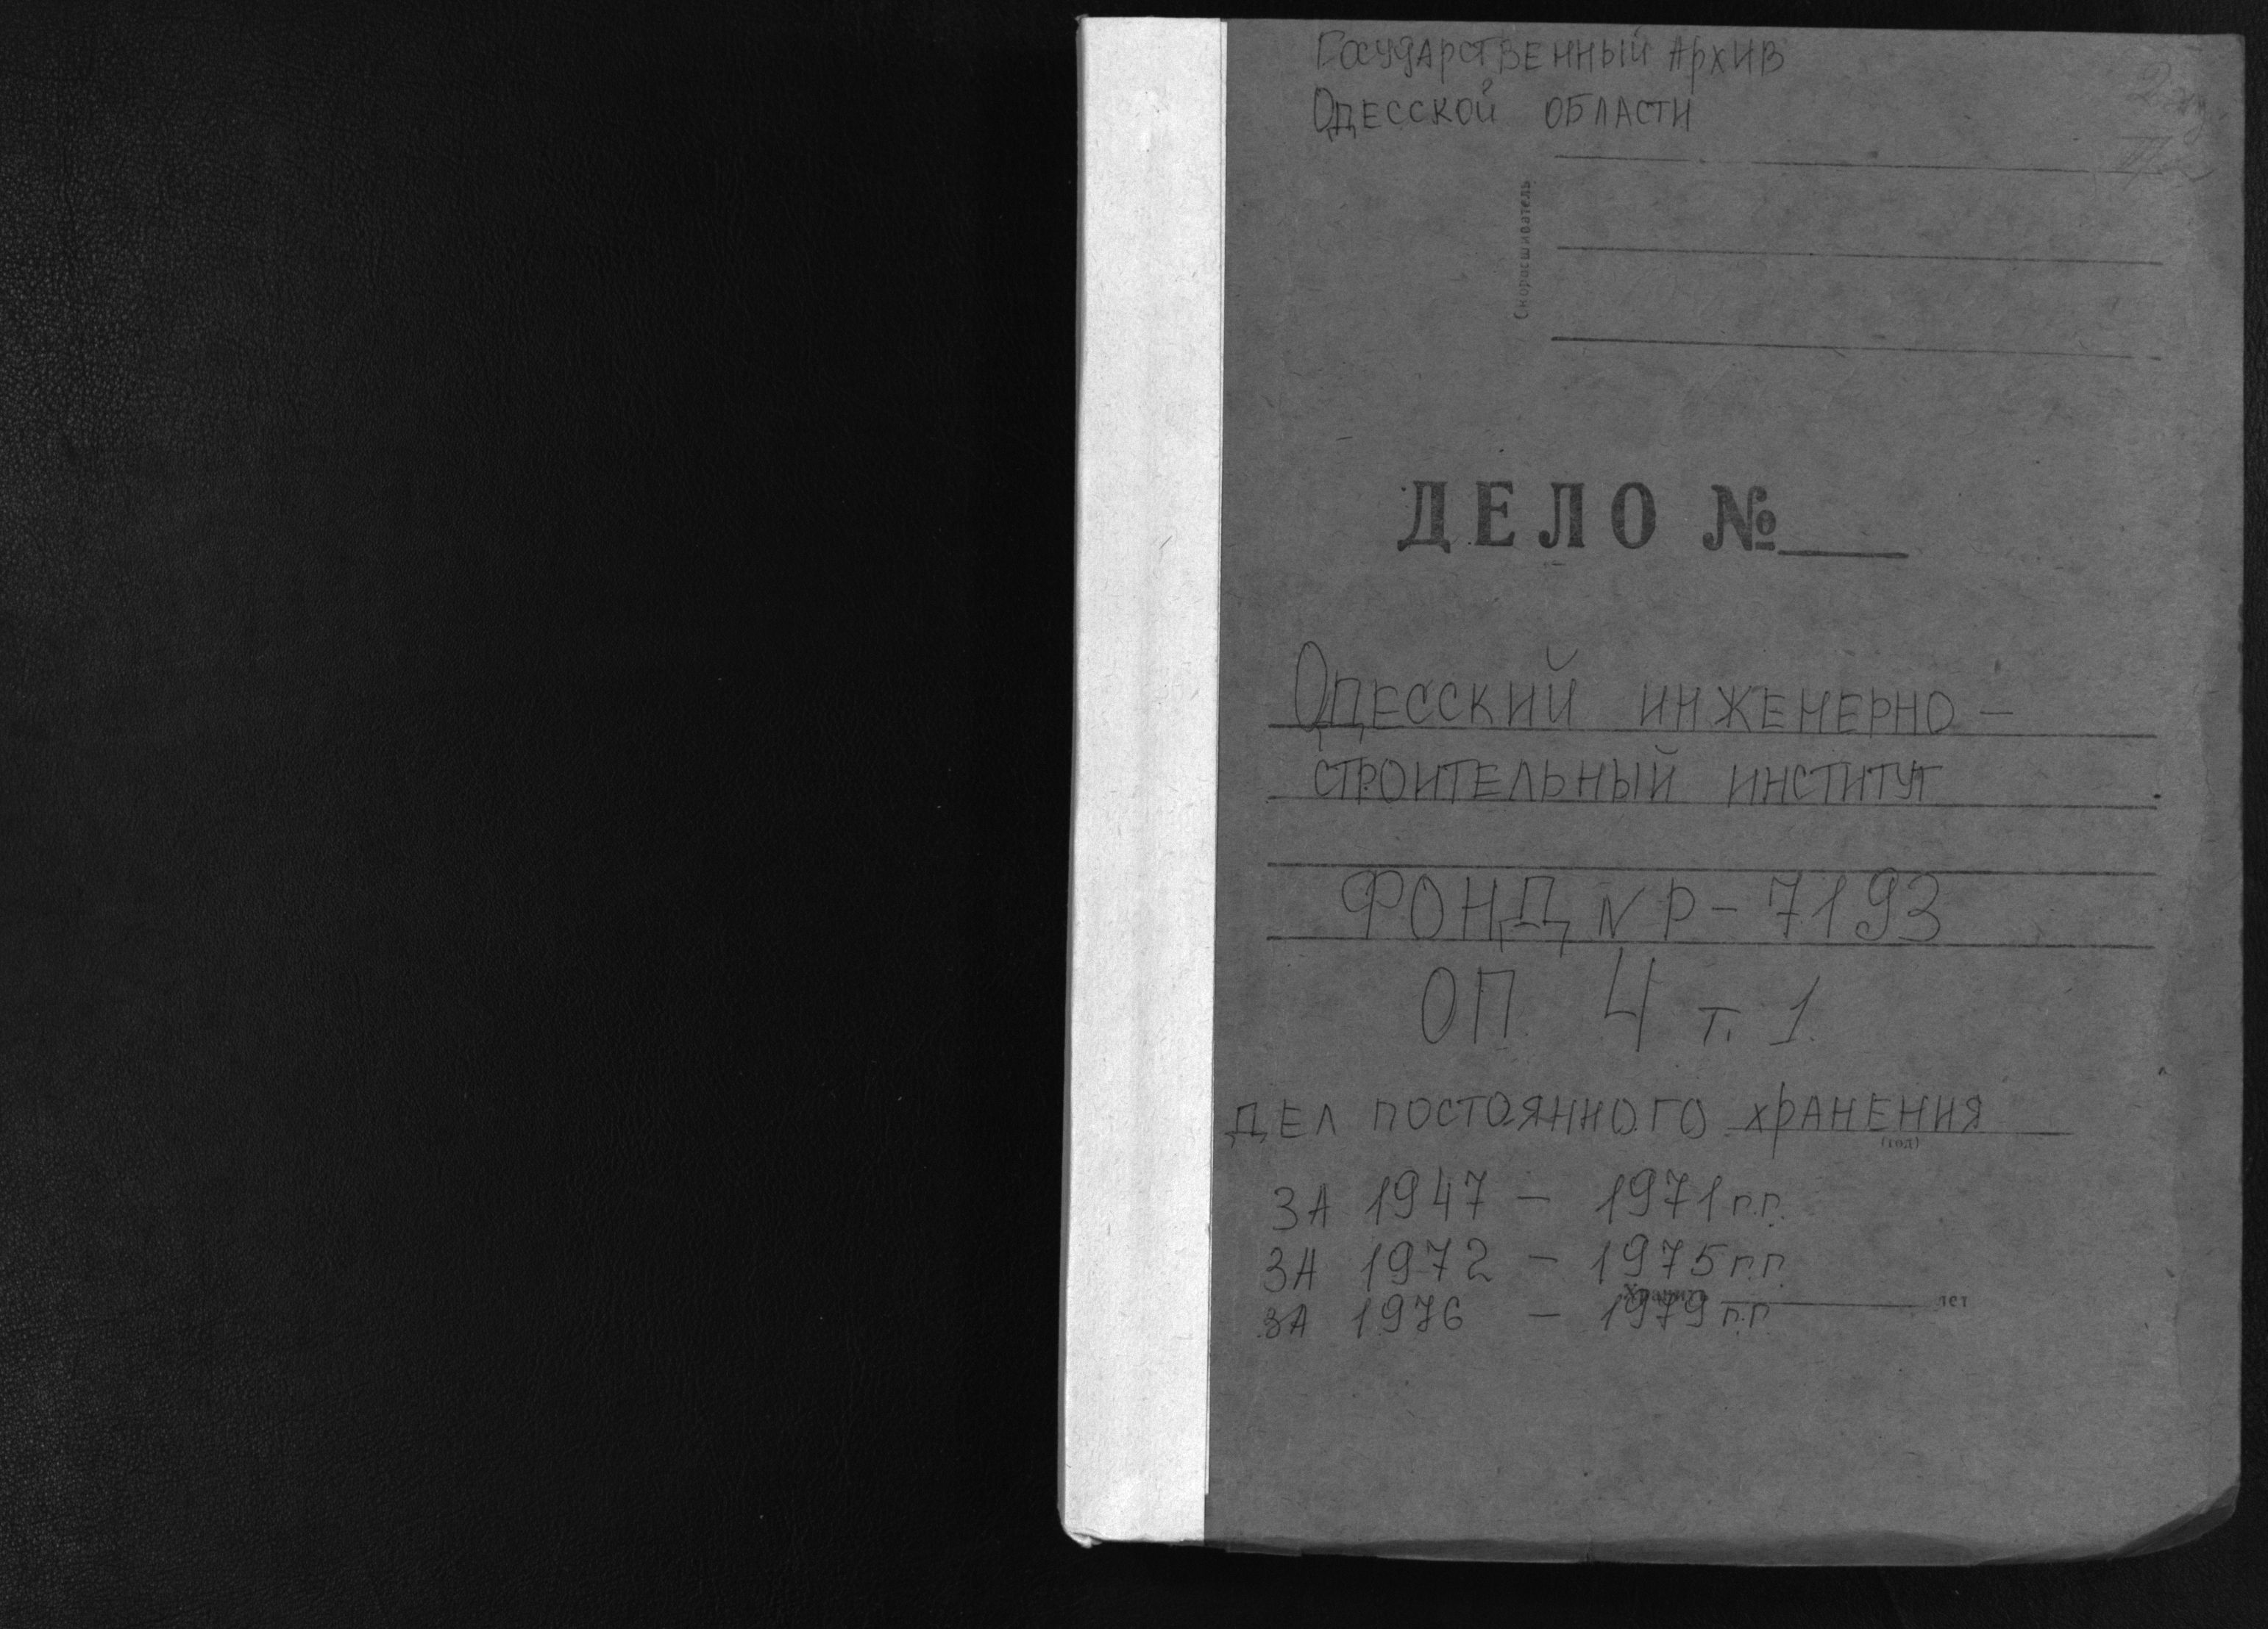 Государственный архив
Одесской области
Скоросшиватель
ДЕЛО №
Одесский инженерно –
строительный институт
Фонд N Р – 7193
оп 4 т. 1.
дел постоянного хранения
(год)
за 1947 – 1971 г.г.
за 1972 – 1975 г.г.
Хранить лет
за 1976 – 1979 г.г